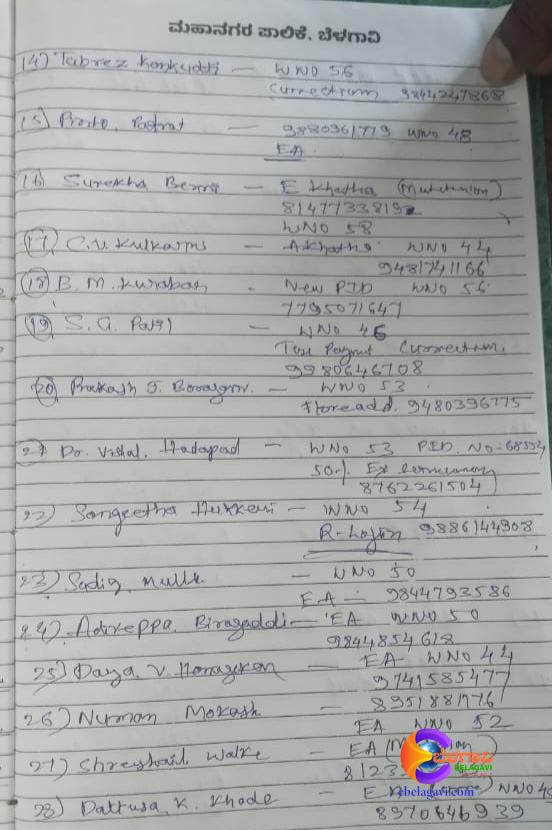 ಮಹಾನಗರ ಪಾಲಿಕೆ. ಬೆಳಗಾವಿ
14) Tabrez Konkuddi — WNO 56
Currectium 9844247868
15) Pasrat — 9880361719 WNO 48
EA
16) Surekha Benni — E Khatha (Mutetunion)
8147733819
WNO 58
17) C.V. Kulkarni — Akhatha WNO 44
9481741166
18) B. M. Kuraban - New PID WNO 56
7795071647
19) S. G. Patil — WNO 46
Tax Paymt Currectium,
9980646708
20) Prakash J. — WNO 53
add. 9480396775
21) Dr. Vishal. Hadapad — WNO 53 PID. NO-68554
50%
8762261504
22) Sangeetha Hukkeri — WNO 54
R-Login 9886144908
23) Sadiq Mulla — WNO 50
EA — 9844793586
24) Adiveppa. Biragaddi — EA WNO 50
9844854618
25) Daya. V. — EA WNO 44
9741585477
26) Numan Mokash — 8951881776
EA WNO 52
27) Shreyshail Walke — EA
8123
28) Dattusa. K. Khode — E WNO
8970646939
BELAGAVI
ebelagavi.com